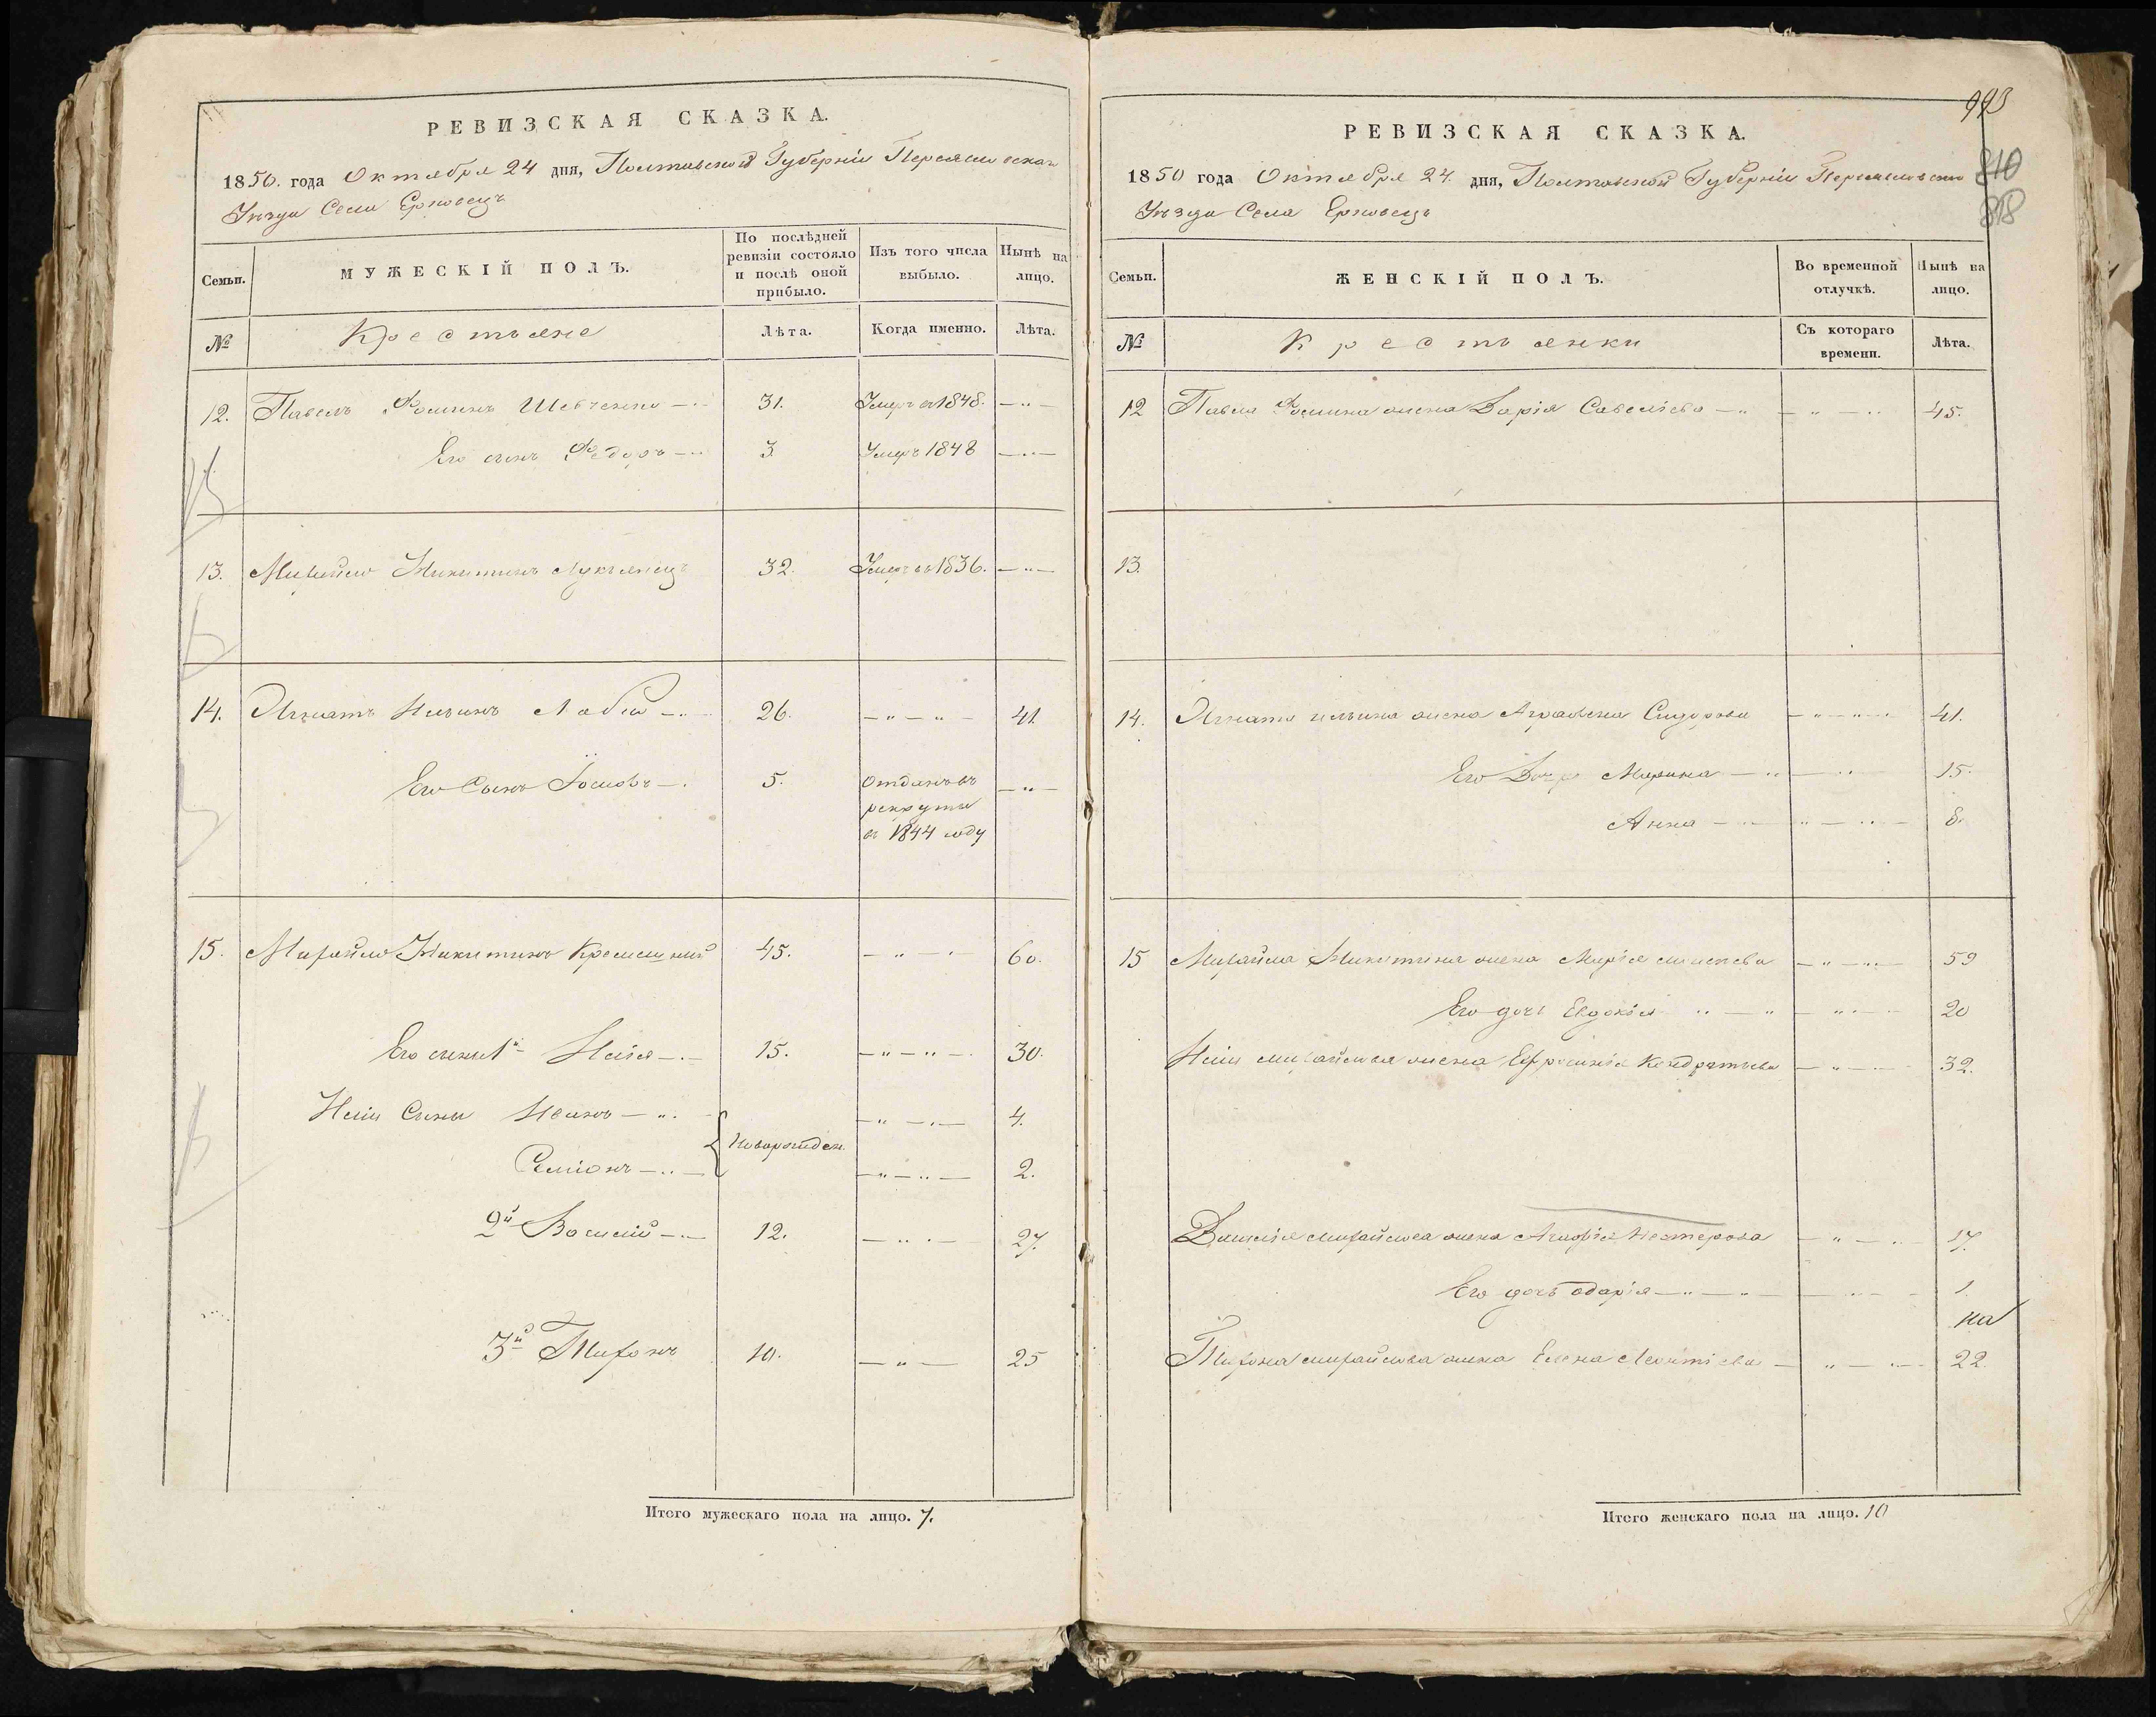 РЕВИЗСКАЯ СКАЗКА.
1850. года Октября 24 дня, Полтавской Губерніи Переяславскаго
Уѣзда Села Ерковецъ
Семьи.
МУЖЕСКІЙ ПОЛЪ.
По послѣдней ревизіи состояло и послѣ оной прибыло.
Изъ того числа выбыло.
Нынѣ на лицо.
№
Крестьяне
Лѣта.
Когда именно.
Лѣта.
12. Павелъ Фоминъ Шевченко 31. Умеръ въ 1848.
Его сынъ Федоръ 3 Умеръ 1848
13. Михайло Никитинъ Лукьянецъ 32. Умеръ въ 1836.
14. Игнатъ Ильинъ 26. 41.
Его Сынъ Іосифъ 5. Отданъ въ
рекруты
въ 1844 году
15. Михайло Никитинъ 45. 60.
Его сыны 1й Илія 15. 30.
Иліи Сыны Иванъ 4.
Новорожден.
Семіонъ 2.
2й Василій 12. 27.
3й Тихонъ 10. 25
Итого мужескаго пола на лицо. 7.
993
810
818
РЕВИЗСКАЯ СКАЗКА.
1850 года Октября 24. дня, Полтавской Губерніи Переяславскаго
Уѣзда Села Ерковецъ
Семьи.
ЖЕНСКІЙ ПОЛЪ.
Во временной отлучкѣ.
Нынѣ на лицо.
№
Крестьянки
Съ котораго времени.
Лѣта.
12 Павла Фомина жена Дарія Савеліева 45.
13.
14. Игната ильина жена Сидорова 41.
Его Дочь Марина 15.
Анна 8.
15 Михайла Никитина жена Марія 59
Его дочь Евдокія 20
Иліи михайлова жена Ефросинія Кондратьева 32.
Василія михайлова жена Агафія Нестерова 17.
Его дочь одарія 1.
на
Тихона михайлова жена Елена Леонтіева 22.
Итого женскаго пола на лицо. 10